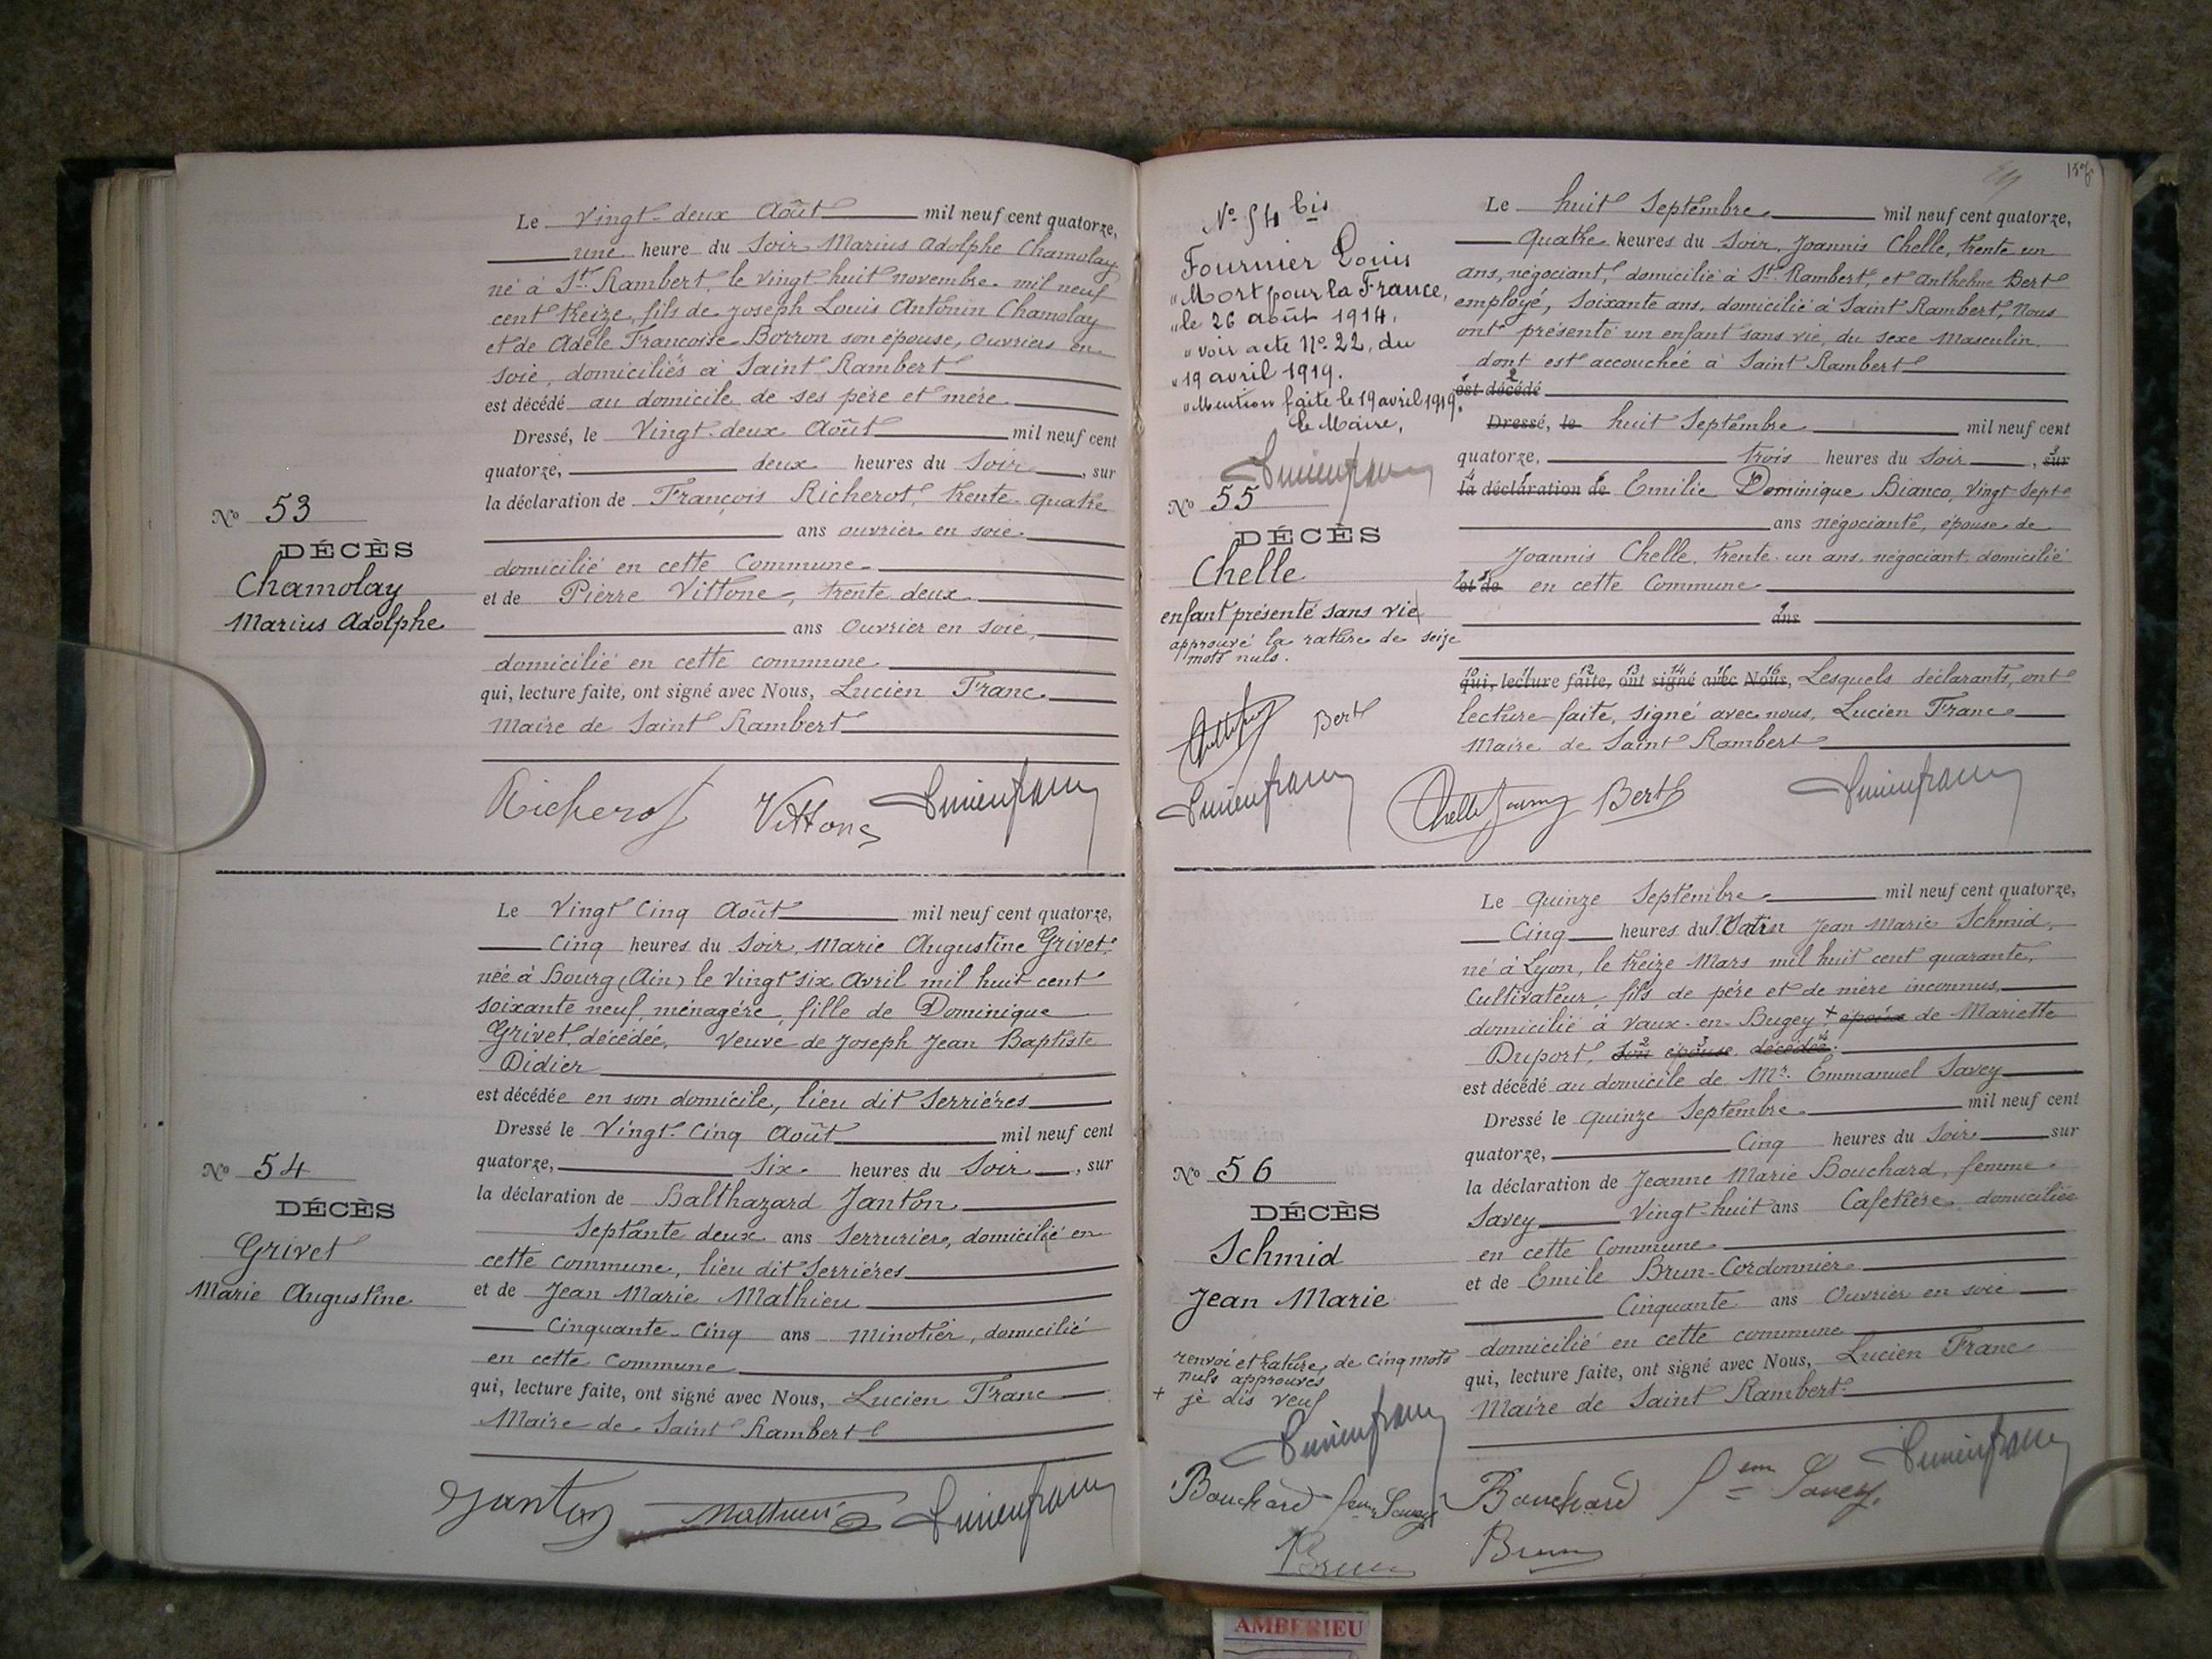 Le Vingt-deux Août mil neuf cent quatorze,
une heure du Soir Marius Adolphe Chamolay
né à St. Rambert, le vingt-huit novembre mil neuf
cent treize, fils de Joseph Louis Antonin Chamolay
et de Adèle Francoise Borron son épouse, ouvriers en
soie, domiciliés à Saint Rambert
est décédé au domicile de ses père et mère
Dressé, le Vingt-deux Août mil neuf cent
quatorze, deux heures du Soir, sur
la déclaration de François Richerot, trente-quatre
ans ouvrier en soie
domicilié en cette Commune
et de Pierre Vittone, trente deux
ans Ouvrier en Soie,
domicilié en cette commune
qui, lecture faite, ont signé avec Nous, Lucien Franc
Maire de Saint Rambert
No 53
DÉCÈS
Chamolay
Marius Adolphe
Richerot Vittone Lucien franc
Le Vingt Cinq Août mil neuf cent quatorze,
Cinq heures du Soir, Marie Augustine Grivet
née à Bourg (Ain) le Vingt six Avril mil huit cent
soixante neuf, ménagère, fille de Dominique
Grivet, décédée, Veuve de Joseph Jean Baptiste
Didier
est décédée en son domicile, lieu dit Serrières
Dressé le Vingt-Cinq Août mil neuf cent
quatorze, Six heures du Soir, sur
la déclaration de Balthazard Janton
Septante deux ans Serrurier, domicilié en
cette commune, lieu dit Serrières
et de Jean Marie Mathieu
Cinquante-Cinq ans Minotier, domicilié
en cette Commune
qui, lecture faite, ont signé avec Nous, Lucien Franc
Maire de Saint Rambert
No 54
DÉCÈS
Grivet
Marie Augustine
Janton Mathieu Lucien franc
No 54 bis
Fournier Louis
"Mort pour la France,
"le 26 août 1914.
"voir acte No 22, du
"19 avril 1919.
"Mention faite le 19 avril 1919.
le Maire,
Lucien franc
Le huit Septembre mil neuf cent quatorze,
Quatre heures du Soir, Joannis Chelle, trente un
ans, négociant, domicilié à St. Rambert, et Anthelme Bert
employé, Soixante ans, domicilié à Saint Rambert, Nous
ont présenté un enfant sans vie, du sexe Masculin
dont est accouchée à Saint Rambert
1 2 est décédé
Dressé, le huit Septembre mil neuf cent
quatorze, trois heures du Soir, sur
la déclaration de Emilie Dominique Bianco, Vingt-Sept
ans négociante, épouse de
Joannis Chelle, trente-un ans, négociant, domicilié
et de en cette Commune
ans
10 11 12 13 14 15 16
qui, lecture faite, ont signé avec Nous, Lesquels déclarants, ont
lecture faite, signé avec nous, Lucien Franc
Maire de Saint Rambert
No 55
DÉCÈS
Chelle
enfant présenté sans vie
approuvé la rature de seize
mots nuls.
Bert
Lucien franc
Chelle Bert Lucien franc
Le Quinze Septembre mil neuf cent quatorze,
Cinq heures du Matin Jean Marie Schmid,
né à Lyon, le treize Mars mil huit cent quarante,
Cultivateur, fils de père et de mère inconnus,
domicilié à Vaux-en-Bugey + époux de Mariette
Duport, son épouse décédée
est décédé au domicile de Mr. Emmanuel Savey
Dressé le Quinze Septembre mil neuf cent
quatorze, Cinq heures du Soir sur
la déclaration de Jeanne Marie Bouchard, femme
Savey Vingt-huit ans Cafetière, domiciliée
en cette Commune
et de Emile Brun-Cordonnier
Cinquante ans Ouvrier en soie
domicilié en cette commune
qui, lecture faite, ont signé avec Nous, Lucien Franc
Maire de Saint Rambert
No 56
DÉCÈS
Schmid
Jean Marie
renvoi et rature de Cinq mots
nuls approuvés
+ je dis veuf
Lucien franc
Bouchard fem Savey
Brun
Bouchard fem Savey. Lucien franc
Brun
AMBERIEU